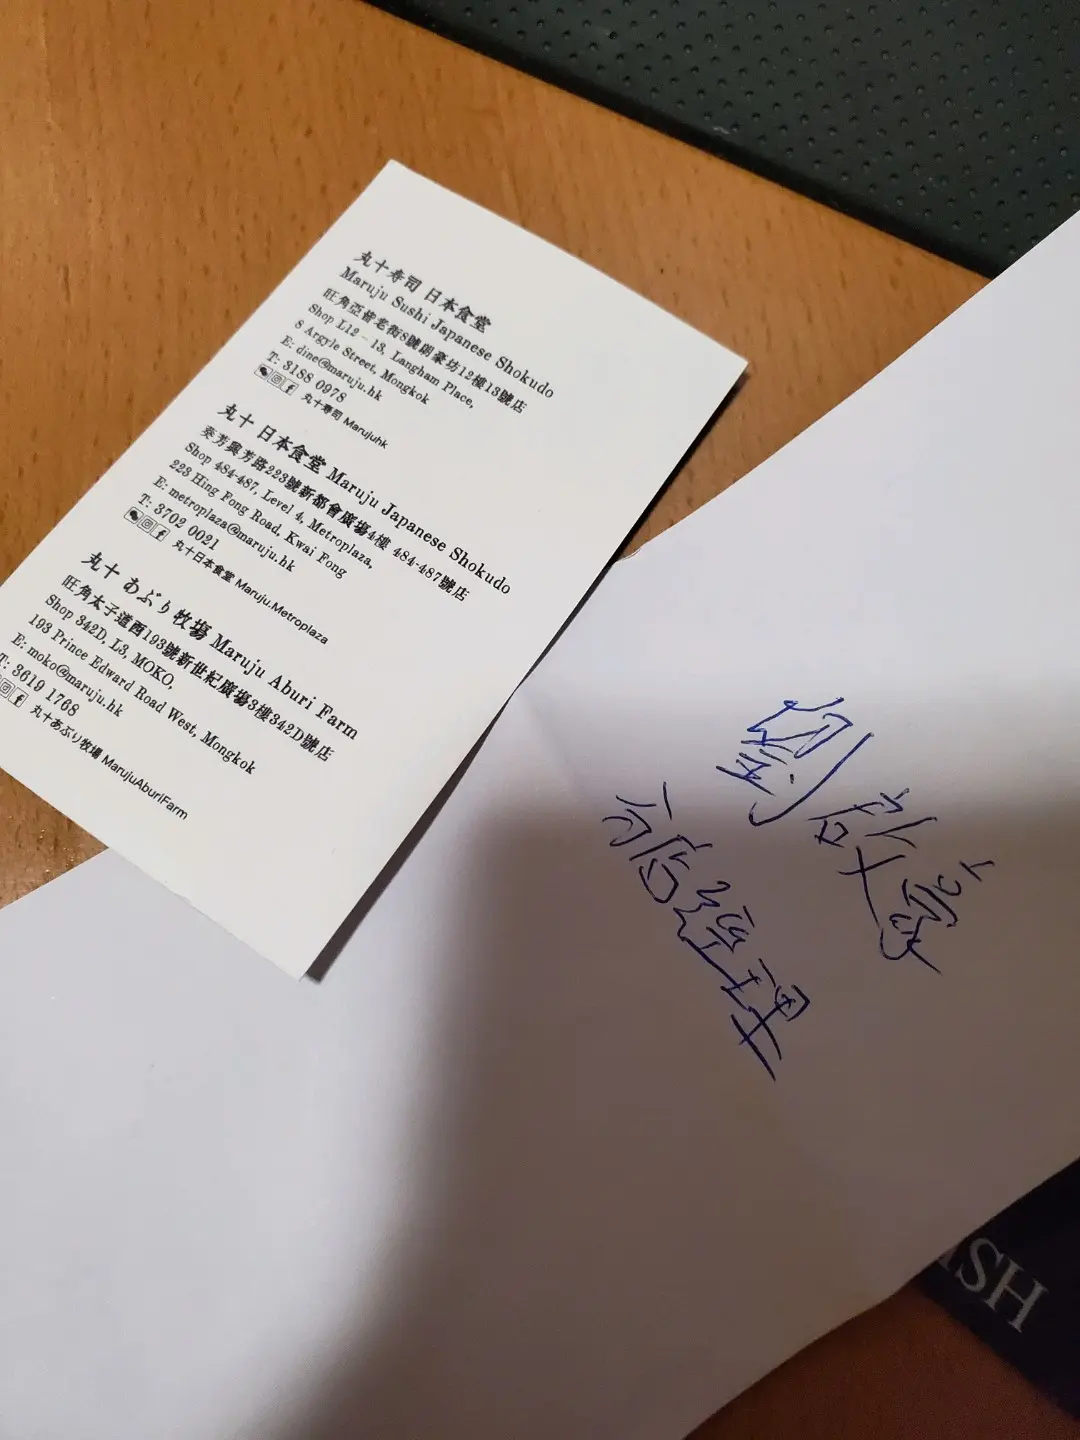 丸十寿司 日本食堂
Maruju Sushi Japanese Shokudo
旺角亞皆老街8號朗豪坊12樓13號店
Shop L12 – 13, Langham Place,
8 Argyle Street, Mongkok
E: dine@maruju.hk
T: 3188 0978
丸十寿司 Marujuhk
丸十 日本食堂 Maruju Japanese Shokudo
葵芳興芳路223號新都會廣場4樓 484-487號店
Shop 484-487, Level 4, Metroplaza,
223 Hing Fong Road, Kwai Fong
E: metroplaza@maruju.hk
T: 3702 0021
丸十日本食堂 Maruju.Metroplaza
丸十 あぶり牧場 Maruju Aburi Farm
旺角太子道西193號新世紀廣場3樓342D號店
Shop 342D, L3, MOKO,
193 Prince Edward Road West, Mongkok
E: moko@maruju.hk
T: 3619 1768
丸十あぶり牧場 MarujuAburiFarm
劉啟
分店經理
ISH